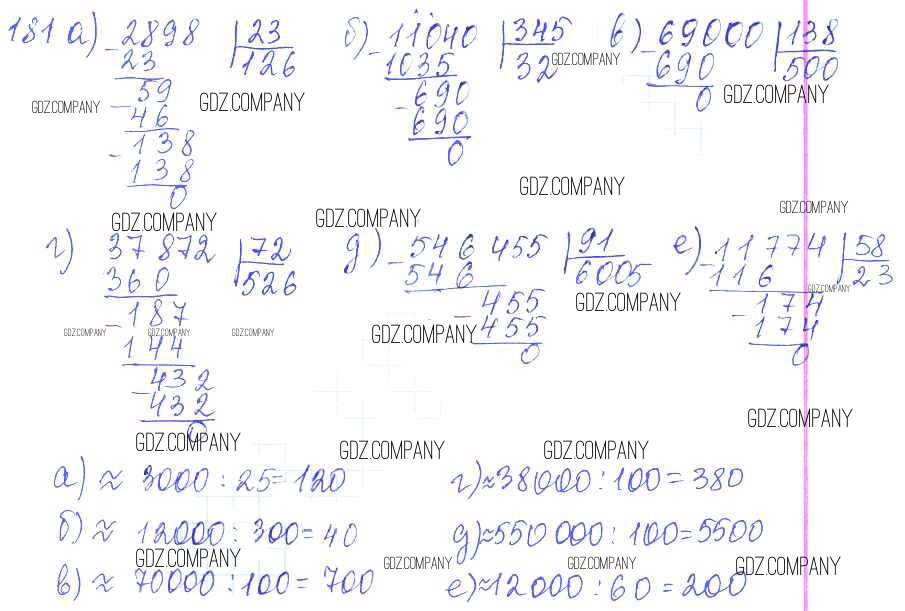 181 а) 2898 | 23 б) 11040 | 345 в) 69000 | 138
23 126 1035 32 GDZ.COMPANY 690 500
59 690 0 GDZ.COMPANY
GDZ.COMPANY 46 GDZ.COMPANY 690
138 0
138
0 GDZ.COMPANY
GDZ.COMPANY GDZ.COMPANY GDZ.COMPANY
г) 37872 | 72 д) 546455 | 91 е) 11774 | 58
360 526 546 6005 116 23
187 455 GDZ.COMPANY 174 GDZ.COMPANY
GDZ.COMPANY GDZ.COMPANY GDZ.COMPANY GDZ.COMPANY 455 174
144 0 0
432
432
0 GDZ.COMPANY
GDZ.COMPANY GDZ.COMPANY GDZ.COMPANY
а) ≈ 3000 : 25 = 120 г) ≈ 38000 : 100 = 380
б) ≈ 12000 : 300 = 40 д) ≈ 550 000 : 100 = 5500
GDZ.COMPANY GDZ.COMPANY GDZ.COMPANY GDZ.COMPANY
в) ≈ 70000 : 100 = 700 е) ≈ 12000 : 60 = 200